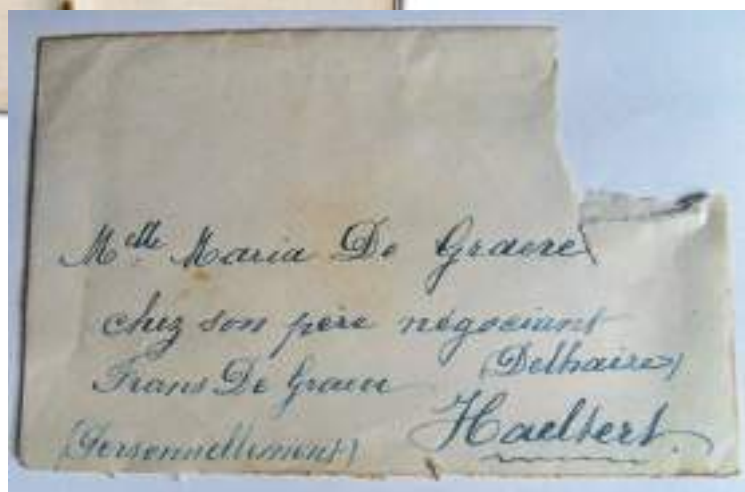 Mlle Maria De Graeve
chez son père négociant
Frans De Graeve (Delhaize)
(Personnellement) Haeltert.